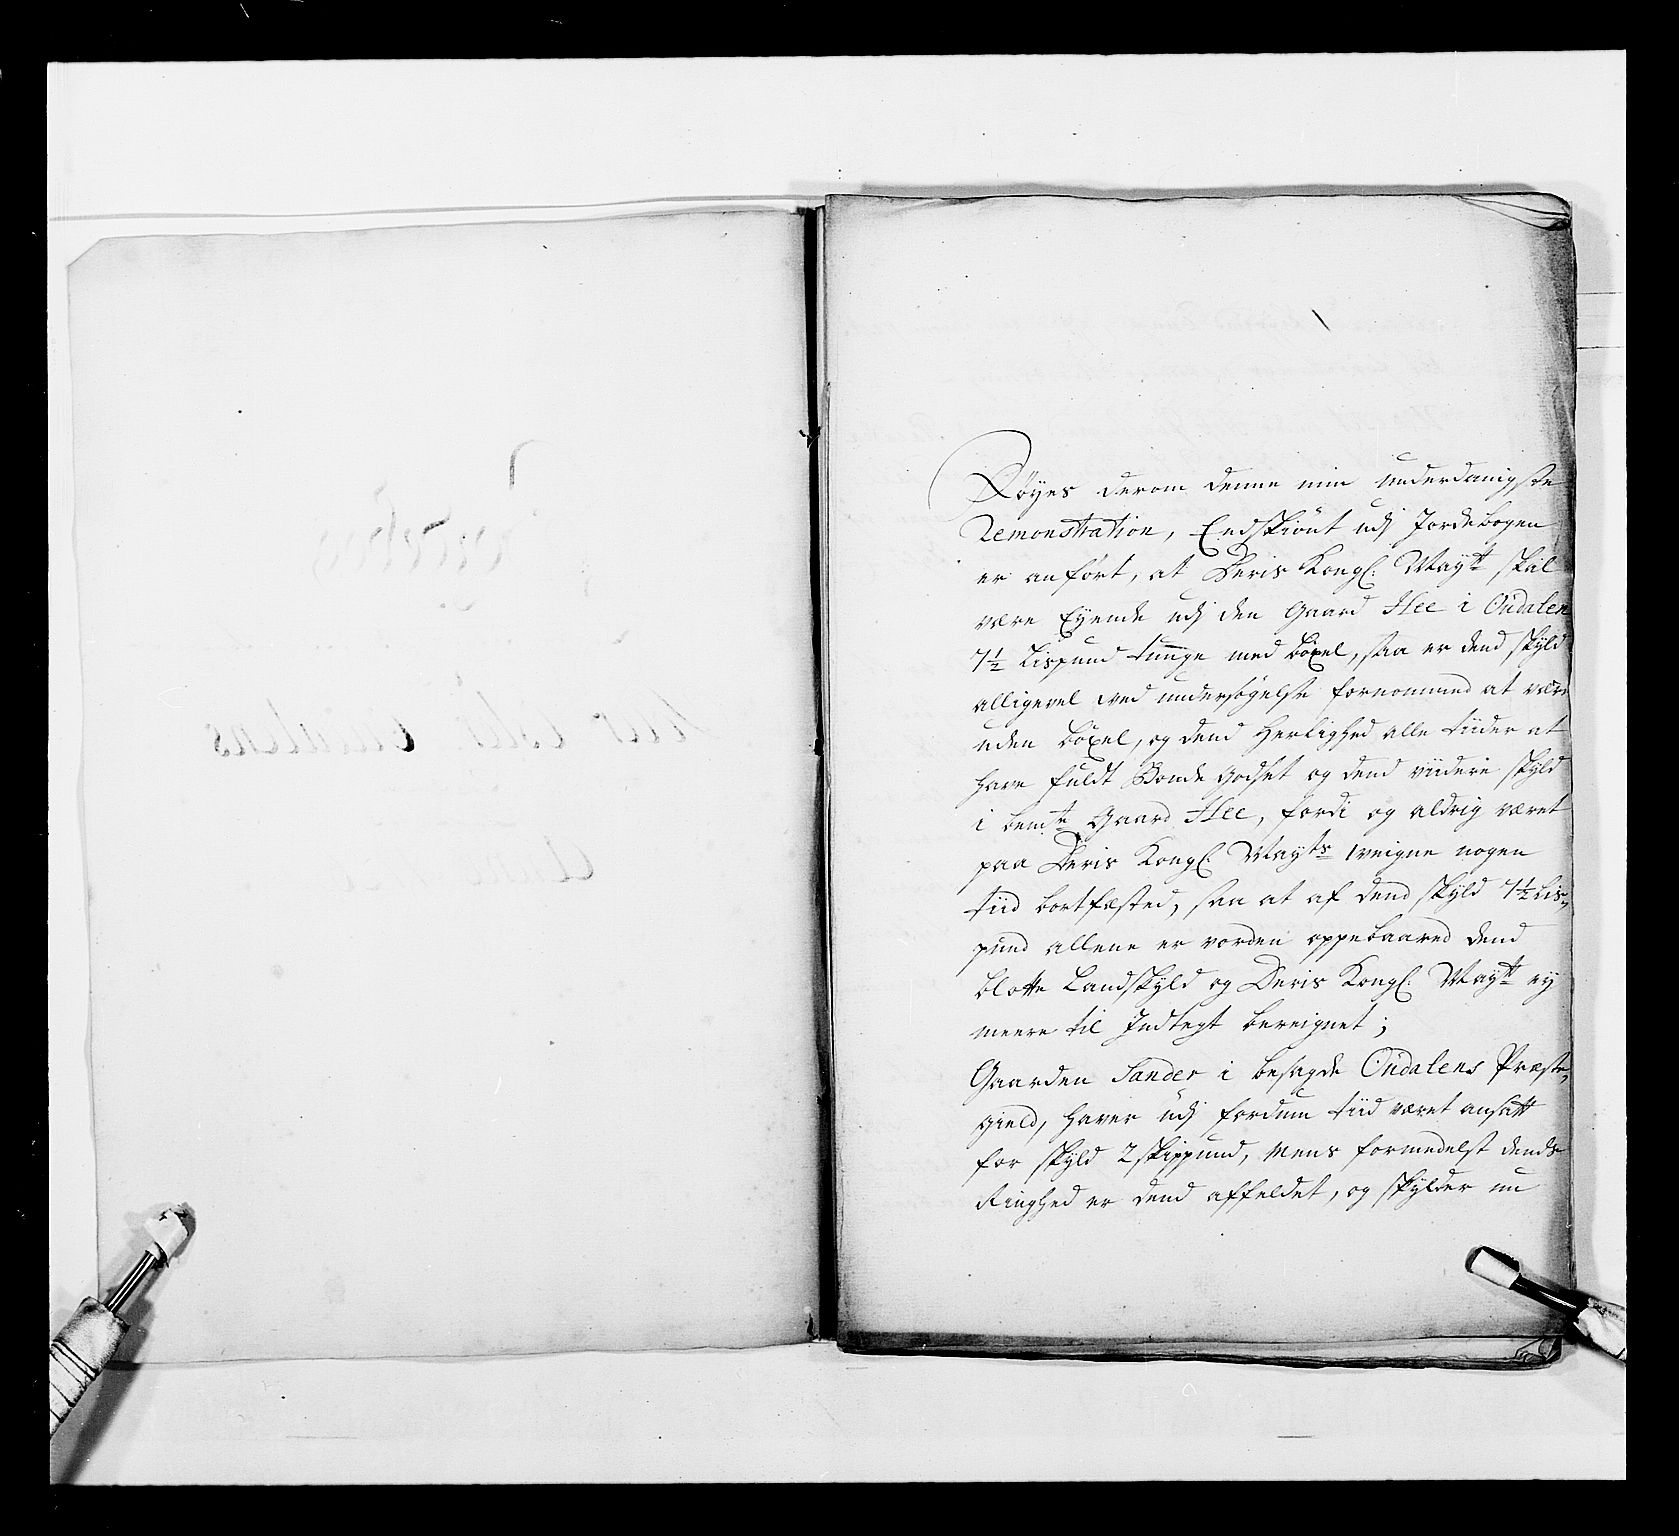 Føyes derom denne min underdanigste
Remonstration, Endskiönt udj Jordebogen
er anført, at Deris Kongl: Maytt skal
være Eyende udj den Gaard Hee i Oudalen
7½ Lispund tunge med böxel, saa er dend skyld
alligevel ved undersögelse fornommend at være
uden böxel, og dend Herlighed alle tiider at
have fuldt Bonde godset og dend viidere skyld
i bemte Gaard Hee, fordi og aldrig været
paa Deris Kongl: Mayts veigne nogen
tiid bortfæsted, saa at af dend skyld 7½ Lis-
pund allene er vorden oppebaared dend
blotte Landskyld og Deris Kongl: Maytt ey
meere til Indtegt bereignet;
Gaarden Sander i besagde Oudalens Præste-
gield, haver udj fordum tiid været ansatt
for skyld 2 skippund, mens formedelst dends
Ringhed er dend affeldet, og skylder nu